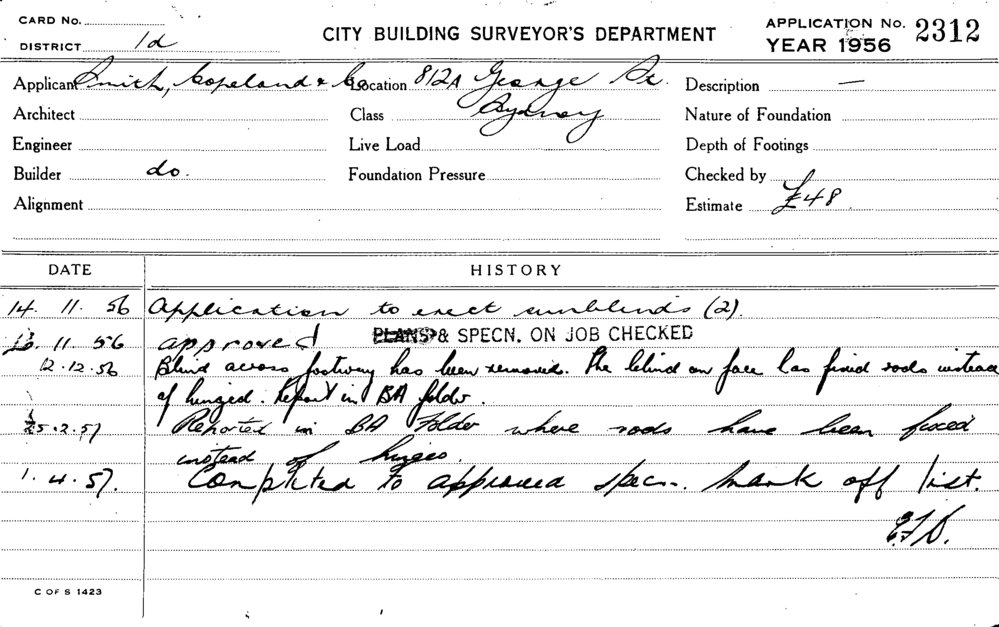 CARD No. CITY BUILDING SURVEYOR'S DEPARTMENT APPLICATION No. 2312
DISTRICT 1d YEAR 1956
Applicant Smith, Copeland & Co Location 812A George St. Description —
Architect Class Sydney Nature of Foundation
Engineer Live Load Depth of Footings
Builder do. Foundation Pressure Checked by
Alignment Estimate £48
DATE HISTORY
14. 11. 56 Application to erect sunblinds (2).
11. 56 approved PLANS & SPECN. ON JOB CHECKED
12.12.56 Blind across footway has been removed. The blind on face has fixed rods instead
of hinged. Report in BA folder.
25.2.57 Reported in BA Folder where rods have been fixed
instead of hinges.
1. 4. 57. Completed to approved specn. Mark off list.
C OF S 1423